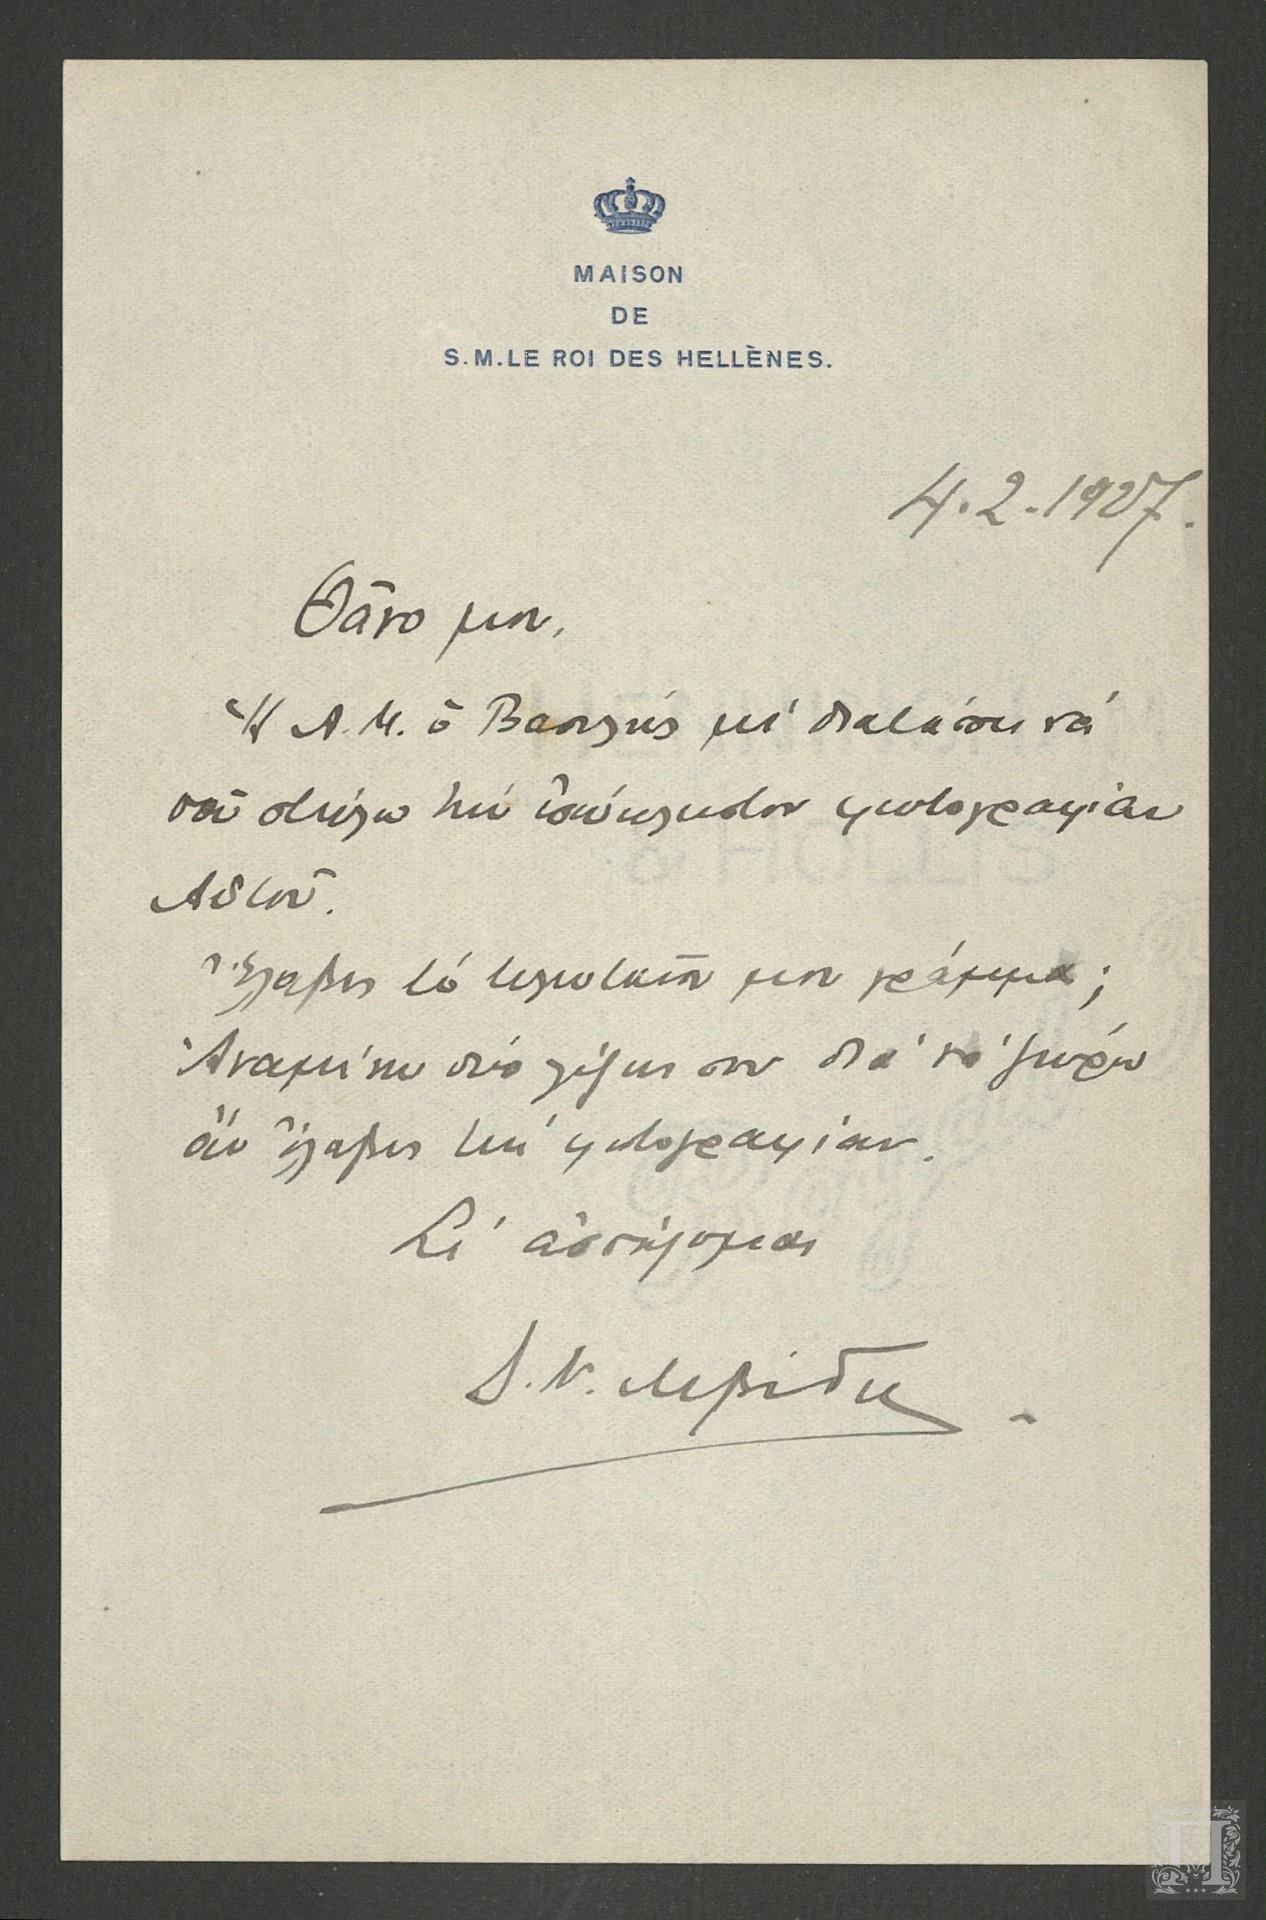 MAISON
DE
S.M. LE ROI DES HELLÈNES.
4.2.1927.
Θᾶνο μου,
Ἡ Α.Μ. ὁ Βασιλεύς μέ διατάσσει νά
σοῦ στείλω τήν ἐσώκλειστον φωτογραφίαν
Αὐτοῦ.
Ἔλαβες τό τελευταῖον μου γράμμα;
Ἀναμένω δύο λέξεις σου διά νά ξεύρω
ἄν ἔλαβες τήν φωτογραφίαν.
Σέ ἀσπάζομαι
Δ.Ν. Λεβίδης